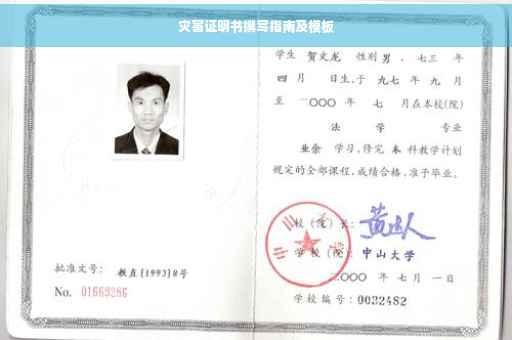 灾害证明书撰写指南及模板
学生 贺文龙 性别 男 、七三 年
四 月 日生,于 九七 年 九 月
至 二〇〇〇 年 七 月在本校(院)
法 学 专业
业余 学习,修完 本 科教学计划
规定的全部课程,成绩合格,准予毕业。
校(院)长:
学 校(院): 中山大学
二〇〇〇 年 七 月 一 日
学校编号: 0032482
批准文号: 教直[1993]8号
No. 01669286